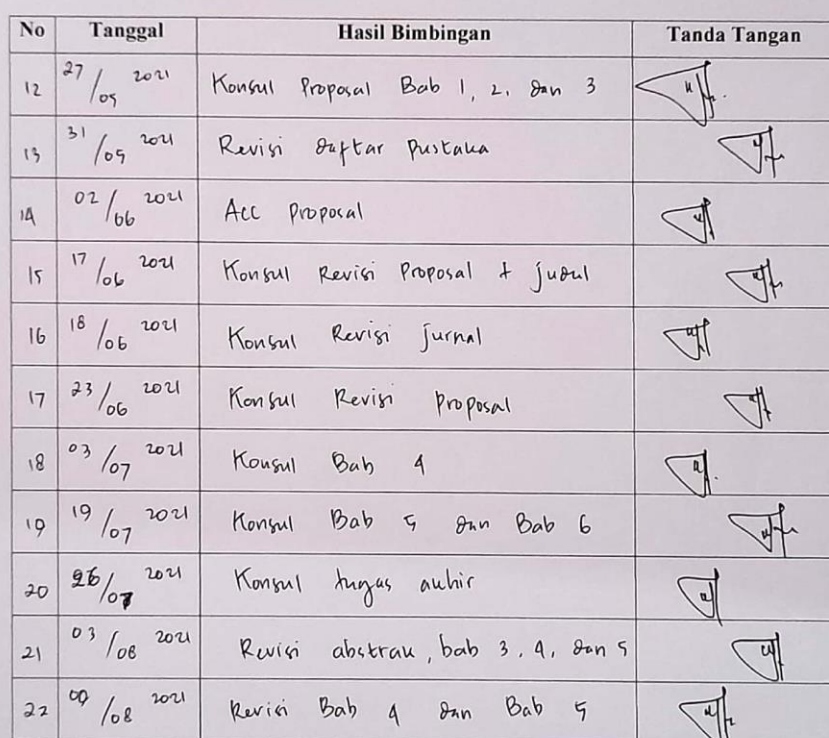 No Tanggal Hasil Bimbingan Tanda Tangan
12 27/05 2021 Konsul Proposal Bab 1, 2, dan 3
13 31/05 2021 Revisi daftar pustaka
14 02/06 2021 Acc proposal
15 17/06 2021 Konsul Revisi Proposal + judul
16 18/06 2021 Konsul Revisi jurnal
17 23/06 2021 Konsul Revisi Proposal
18 03/07 2021 Konsul Bab 4
19 19/07 2021 Konsul Bab 5 dan Bab 6
20 26/07 2021 Konsul tugas akhir
21 03/08 2021 Revisi abstrak, bab 3, 4, dan 5
22 09/08 2021 Revisi Bab 4 dan Bab 5